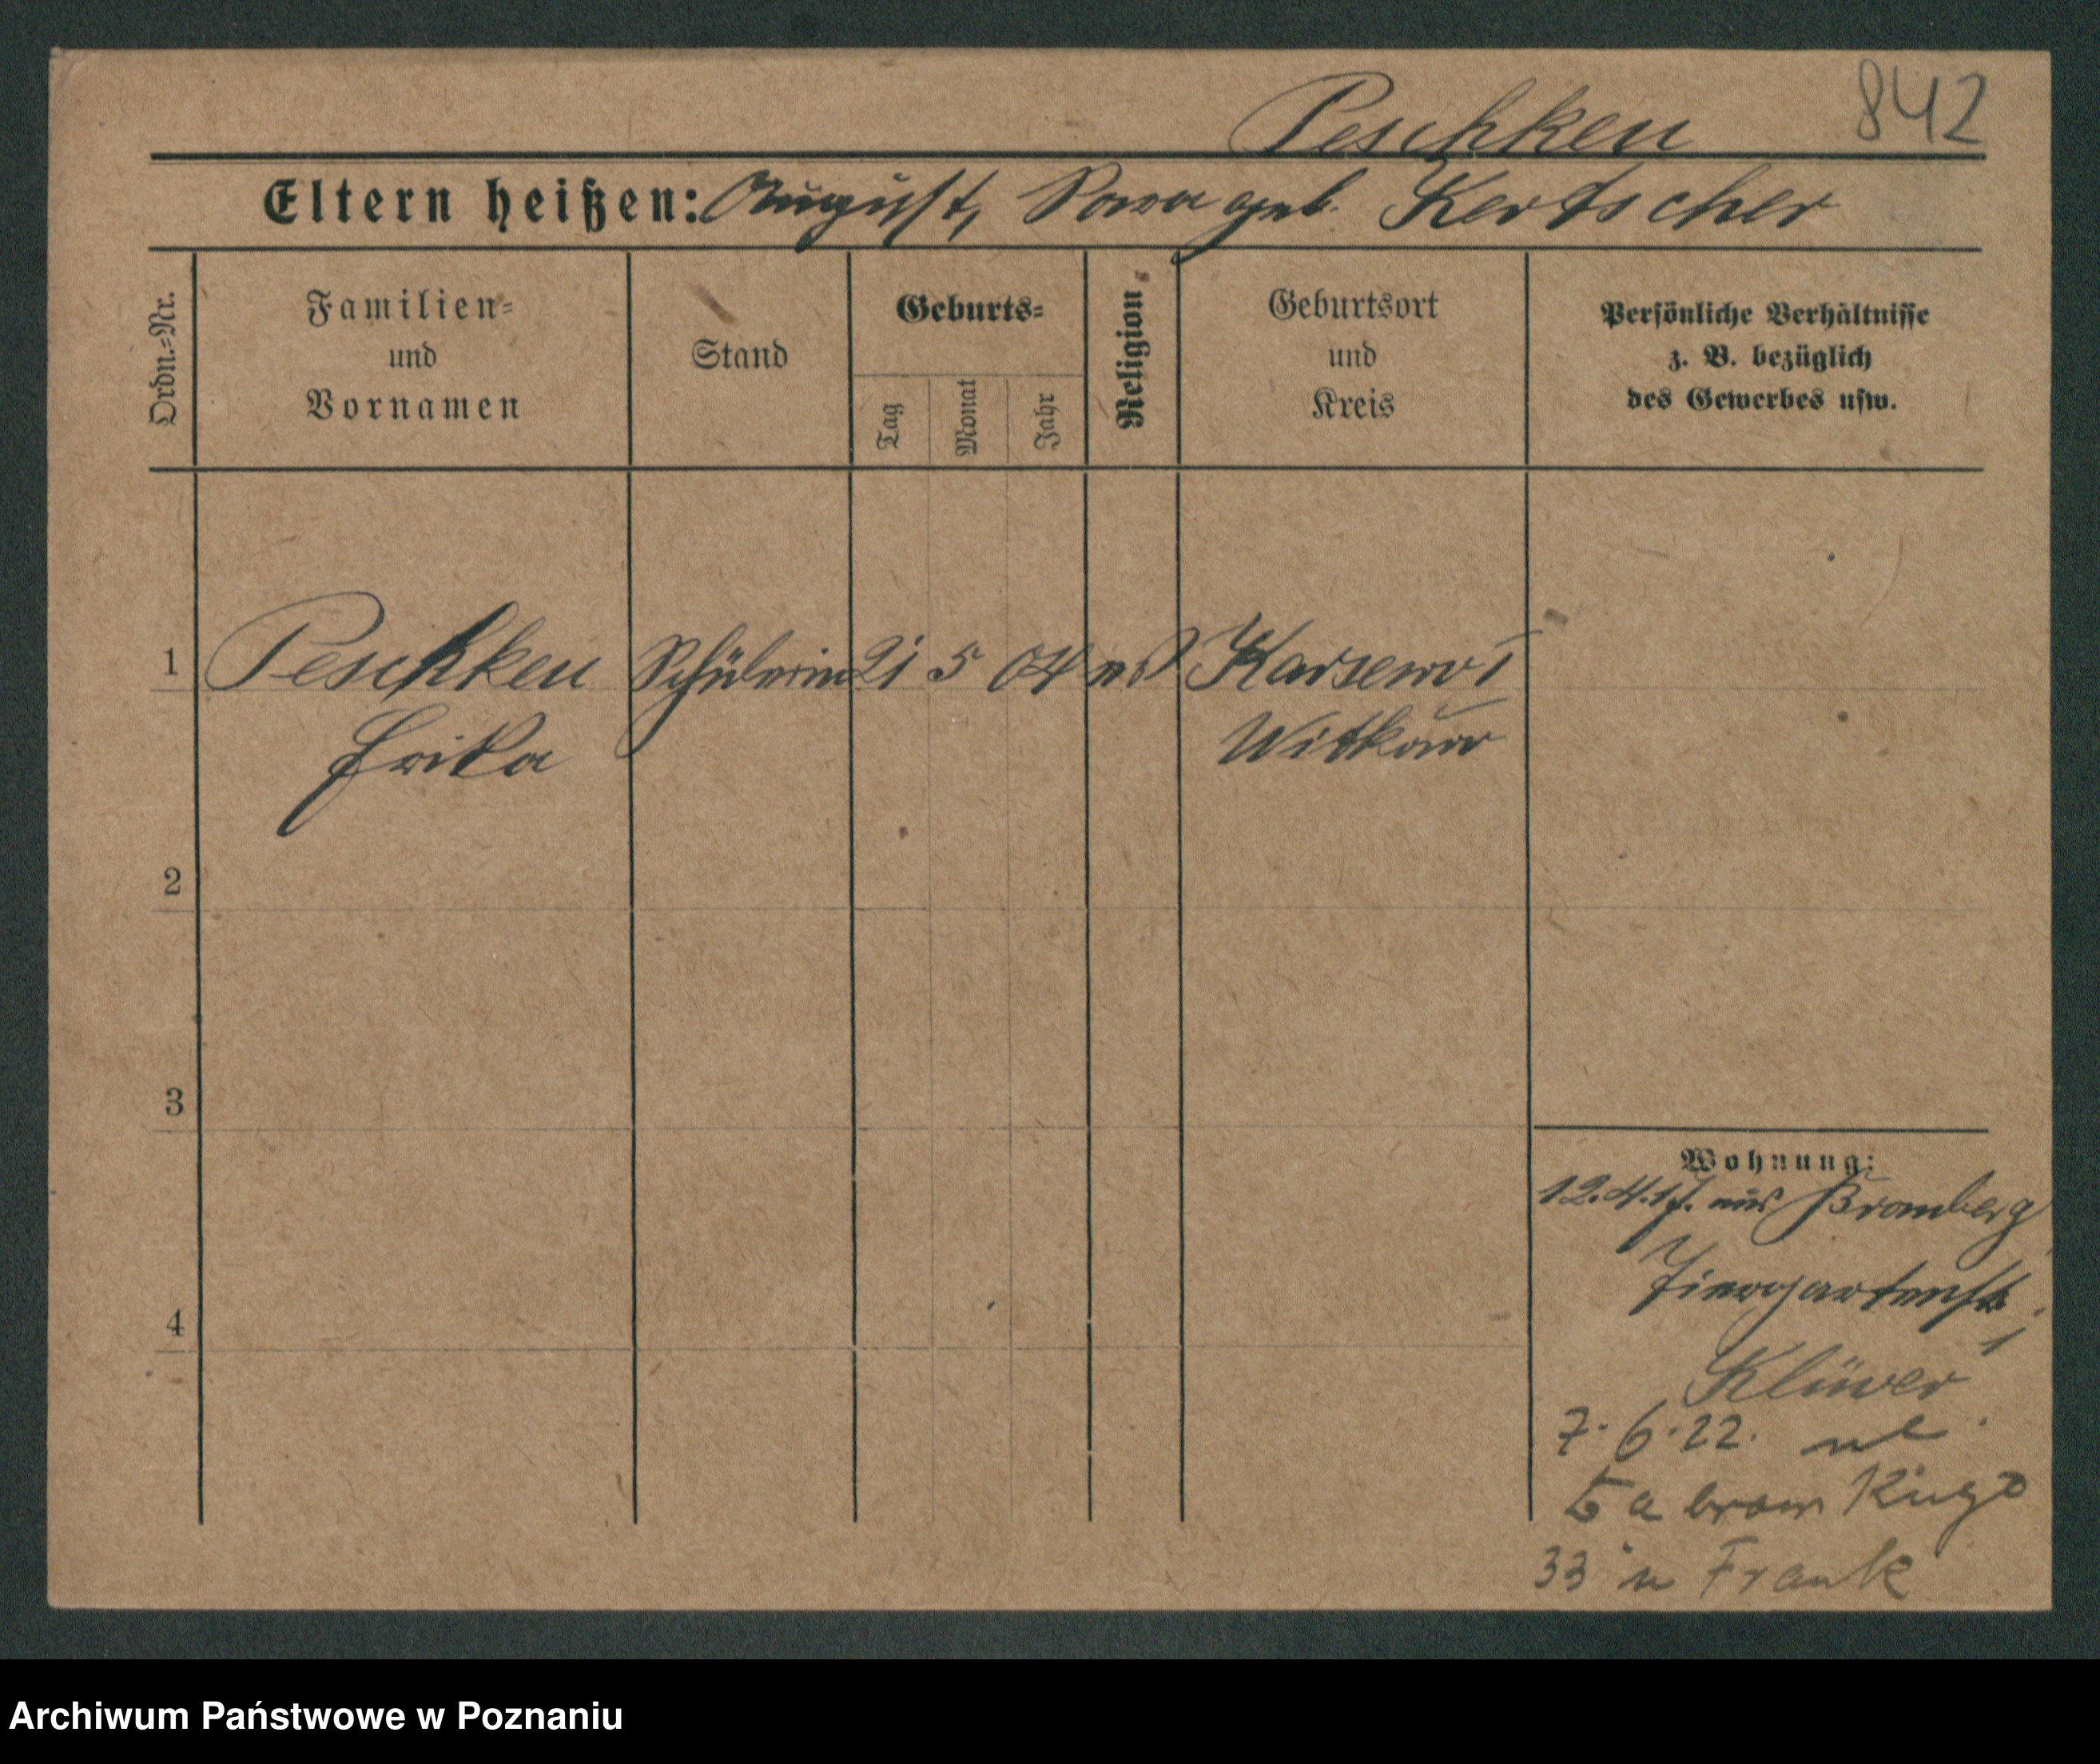 842
Peschken
Eltern heißen: August, geb. Kertscher
Ordn.=Nr.
Familien=
und
Vornamen
Stand
Geburts=
Tag
Monat
Jahr
Religion
Geburtsort
und
Kreis
Persönliche Verhältnisse
z. B. bezüglich
des Gewerbes usw.
1 Peschken Schülerin 21 5 04 Karsewo I
Erika Witkowo
2
3
4
Wohnung:
12.4.17. aus Bromberg
Tiergartenstr.
1
Klüver
7.6.22.
33 Frank
Archiwum Państwowe w Poznaniu